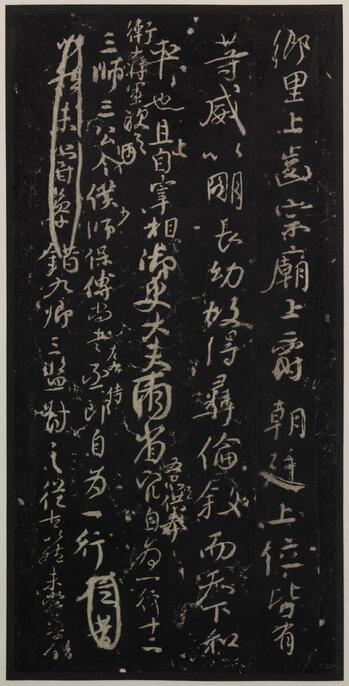 鄉里上齒宗廟上爵朝廷上位皆有
等威以明長幼故得彝倫敘而天下和
平也且自宰相御史大夫兩省供奉官自為一行十二
衛大將軍次之
三師三公令僕少師保傅尚書左右丞侍郎自為一行
九卿三監對之從古以然未嘗參錯